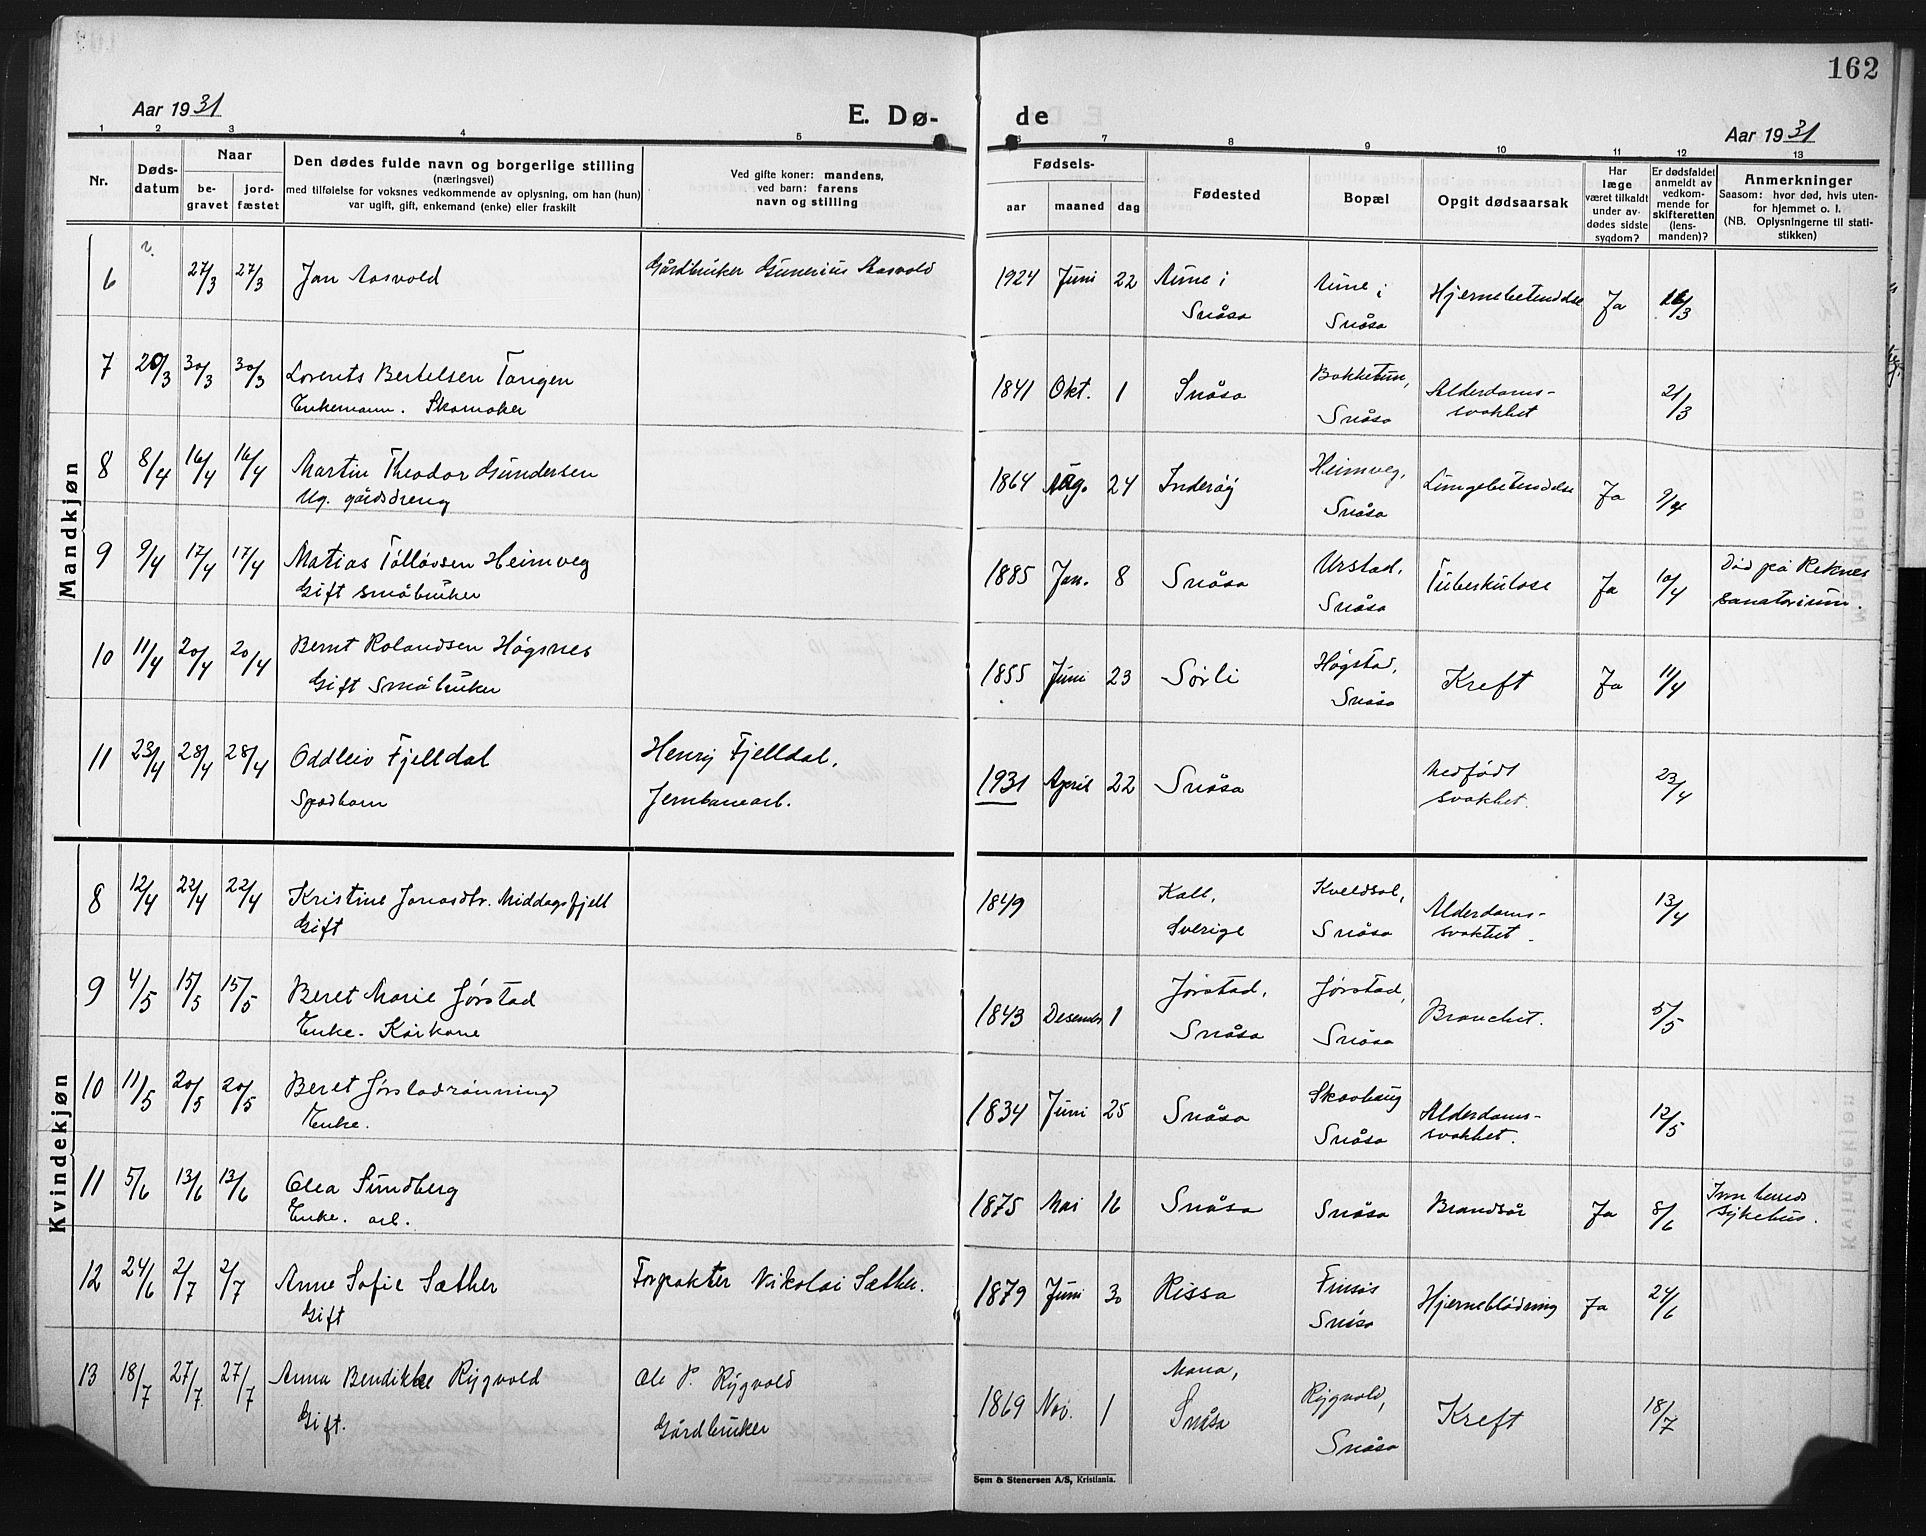 162
Aar 1931
E. Dø-
de
Aar 1931
1 2 3 4 5
6 7 8 9 10 11 12 13
Nr.
Døds-
datum
Naar
be-
gravet
jord-
fæstet
Den dødes fulde navn og borgerlige stilling
(næringsvei)
med tilføielse for voksnes vedkommende av oplysning, om han (hun)
var ugift, gift, enkemand (enke) eller fraskilt
Ved gifte koner: mandens,
ved barn: farens
navn og stilling
Fødsels-
aar maaned dag
Fødested
Bopæl
Opgit dødsaarsak
Har
læge
været tilkaldt
under av-
dødes sidste
sygdom?
Er dødsfaldet
anmeldt av
vedkom-
mende for
skifteretten
(lens-
manden)?
Anmerkninger
Saasom: hvor død, hvis uten-
for hjemmet o. l.
(NB. Oplysningerne til stati-
stikken)
Mandkjøn
6 27/3 27/3 Jan Aasvold Gårdbruker Gunerius Aasvold 1924 Juni 22 Aune i Aune i Hjernebetendelse Ja 26/3
Snåsa Snåsa
7 20/3 30/3 30/3 Lorents Bertelsen Tangen 1841 Okt. 1 Snåsa Bakketun, Alderdoms- 21/3
Enkemann. Skomaker Snåsa svakhet
8 8/4 16/4 16/4 Martin Theodor Gundersen 1864 Aug. 24 Inderøy Heimveg, Lungebetendelse Ja 9/4
Ug. gårdsdreng Snåsa
9 9/4 17/4 17/4 Matias Tølløvsen Heimveg 1885 Jan. 8 Snåsa Urstad, Tuberkulose Ja 10/4 Død på Reknes
Gift småbruker Snåsa sanatorium.
10 11/4 20/4 20/4 Bernt Rolandsen Högsnes 1855 Juni 23 Sørli Högstad, Kreft Ja 11/4
Gift Småbruker Snåsa
11 23/4 28/4 28/4 Oddleiv Fjelldal Henry Fjelldal, 1931 April 22 Snåsa Medfødt 23/4
Spedbarn Jernbanearb. svakhet.
Kvindekjøn
8 12/4 22/4 22/4 Kristine Jonasdtr. Middagsfjell 1849 Kall, Kveldsol, Alderdoms- 13/4
Gift Sverige Snåsa svakhet.
9 4/5 15/5 15/5 Beret Marie Jørstad 1843 Desember 1 Jørstad, Jørstad, Bronchit. 5/5
Enke. Kårkone Snåsa Snåsa
10 11/5 20/5 20/5 Beret Jørstadrønning 1834 Juni 25 Snåsa Skavhaug Alderdoms- 12/5
Enke. Snåsa svakhet.
11 5/6 13/6 13/6 Olea Sundberg 1875 Mai 16 Snåsa Snåsa Brandsår Ja 8/6 Innherreds
Enke. arb. sykehus.
12 24/6 2/7 2/7 Anne Sofie Sæther Forpakter Nikolai Sæther. 1879 Juni 30 Rissa Finsås Hjerneblødning Ja 24/6
Gift Snåsa
13 18/7 27/7 27/7 Anna Bendikke Rygvold Ole P. Rygvold 1869 Nov. 1 Mona, Rygvold, Kreft 18/7
Gift. Gårdbruker Snåsa Snåsa
Sem & Stenersen A/S, Kristiania.